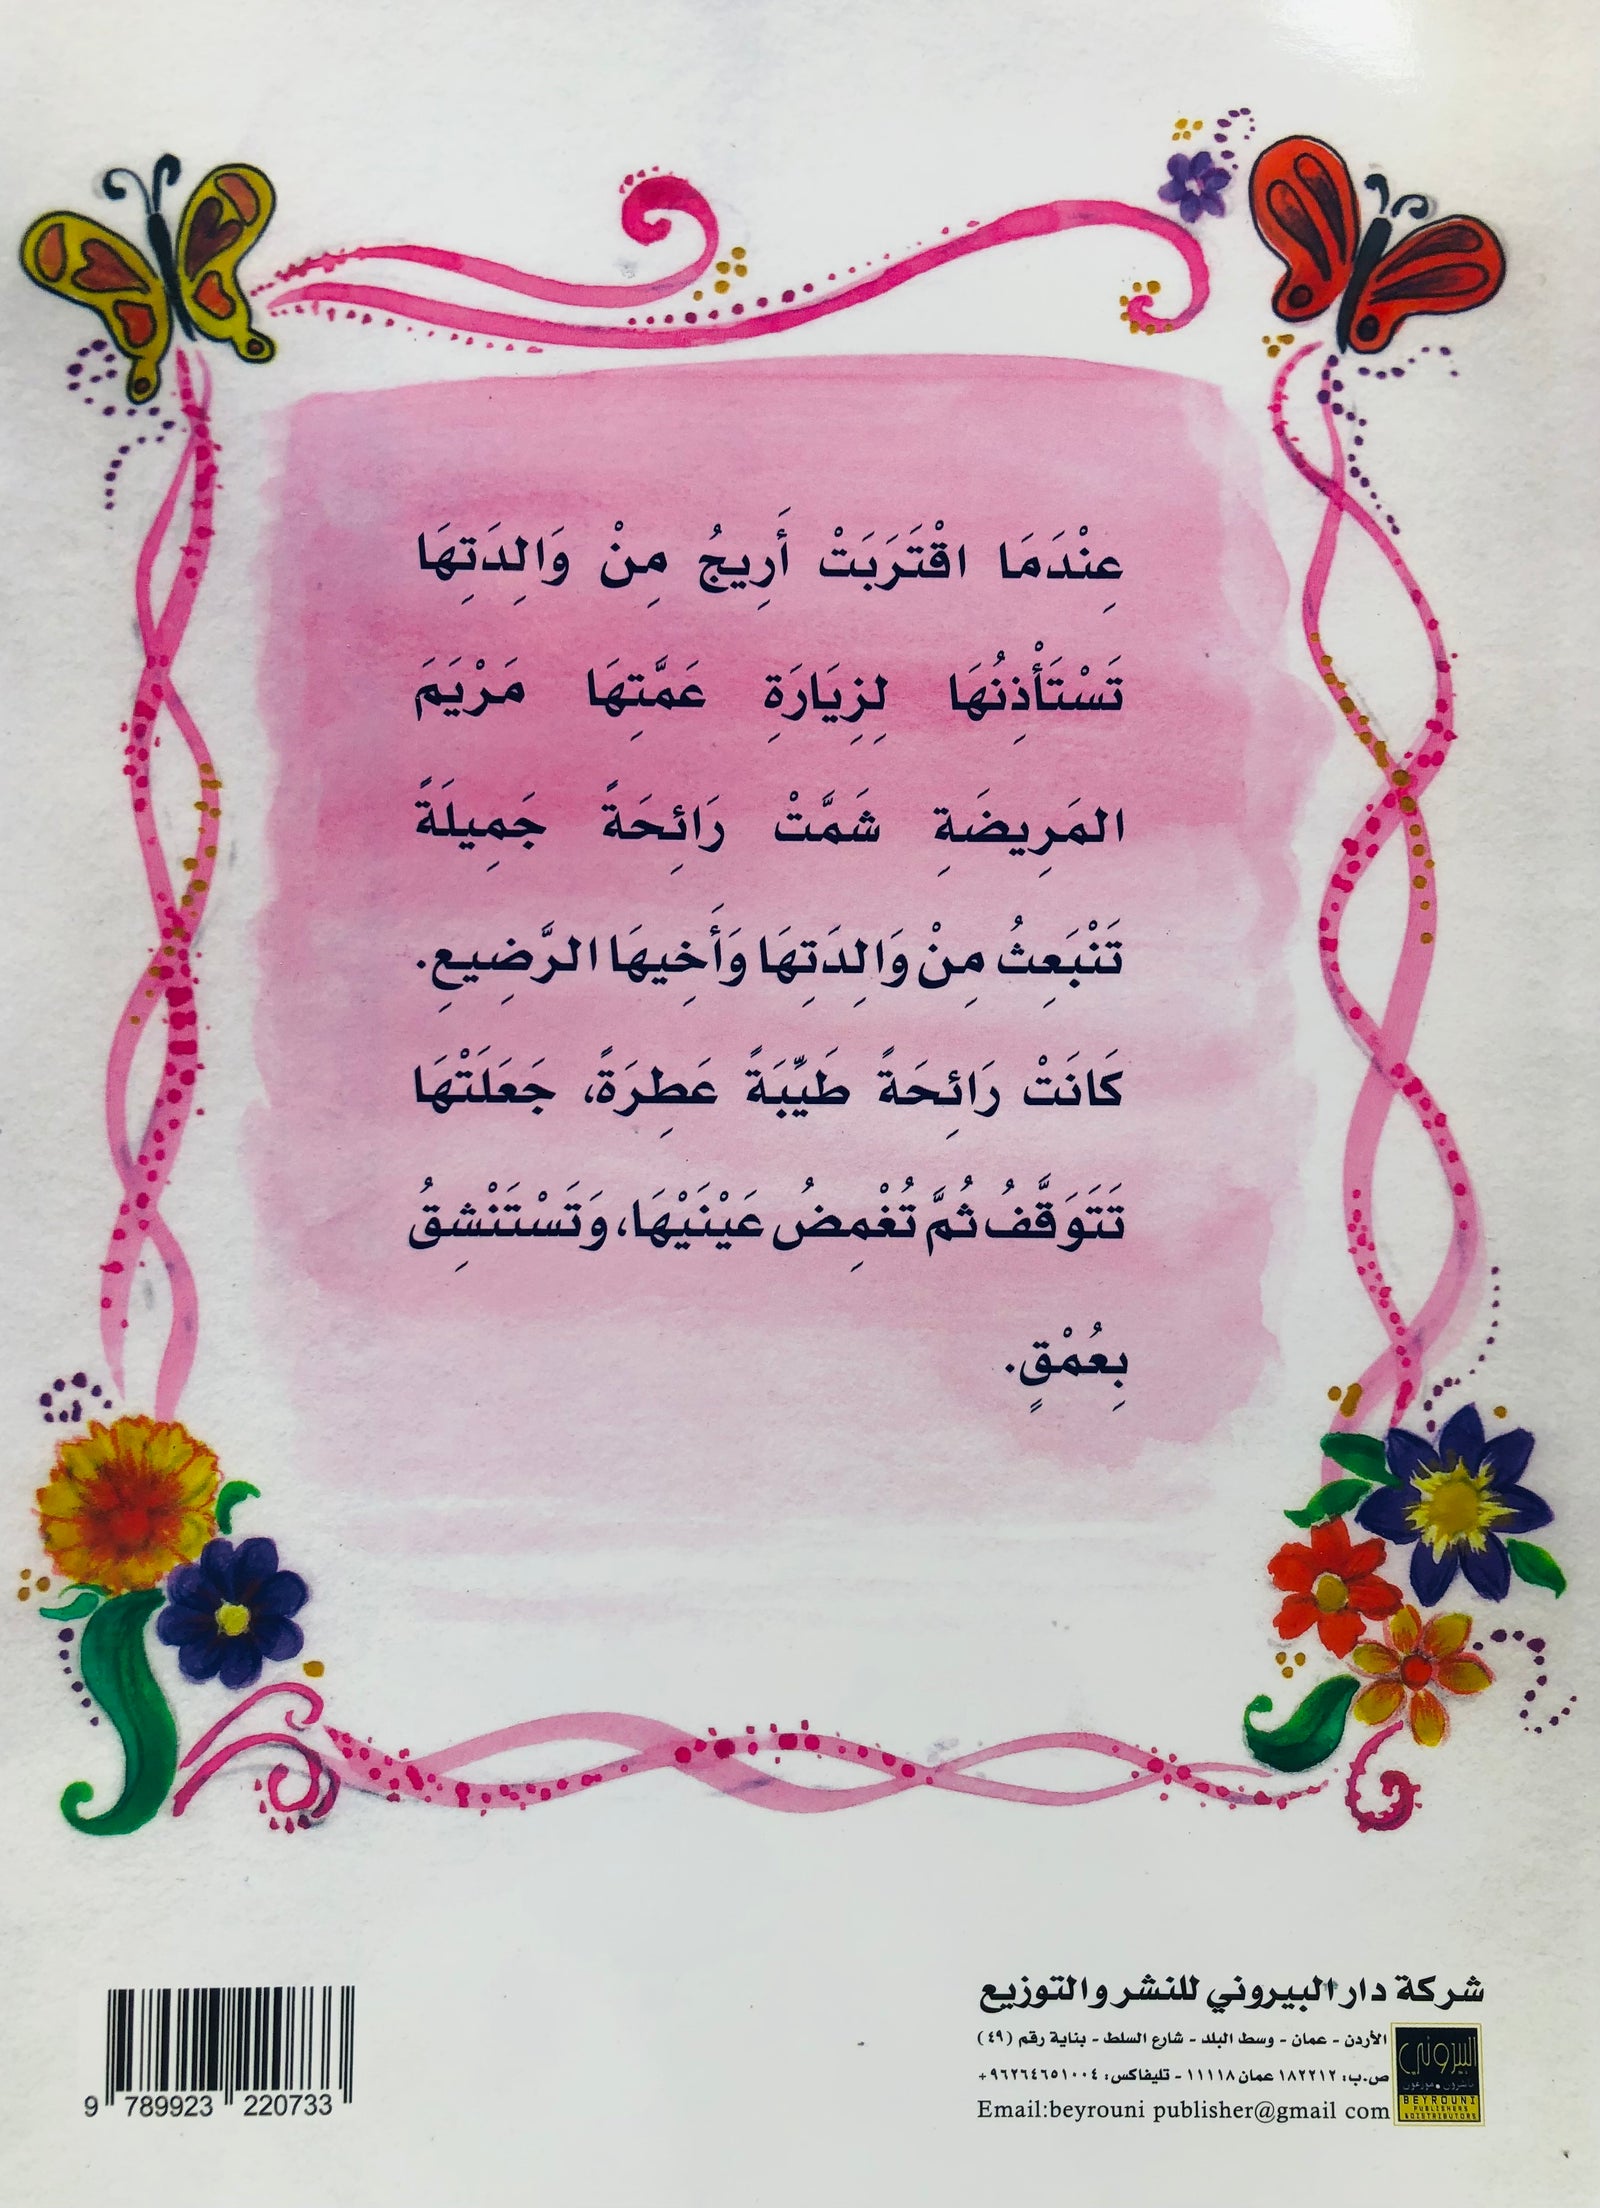 عِنْدَمَا اقْتَرَبَتْ أَرِيجُ مِنْ وَالِدَتِهَا
تَسْتَأْذِنُهَا لِزِيَارَةِ عَمَّتِهَا مَرْيَمَ
المَرِيضَةِ شَمَّتْ رَائِحَةً جَمِيلَةً
تَنْبَعِثُ مِنْ وَالِدَتِهَا وَأَخِيهَا الرَّضِيعِ.
كَانَتْ رَائِحَةً طَيِّبَةً عَطِرَةً، جَعَلَتْهَا
تَتَوَقَّفُ ثُمَّ تُغْمِضُ عَيْنَيْهَا، وَتَسْتَنْشِقُ
بِعُمْقٍ.
شركة دار البيروني للنشر والتوزيع
الأردن - عمان - وسط البلد - شارع السلط - بناية رقم (٤٩)
ص.ب: ١٨٢٢١٢ عمان ١١١١٨ - تليفاكس: ٩٦٢٦٤٦٥١٠٠٤+
Email:beyrouni publisher@gmail com
البيروني
ناشرون • موزعون
BEYROUNI
PUBLISHERS
&DISTRIBUTORS
9 789923 220733